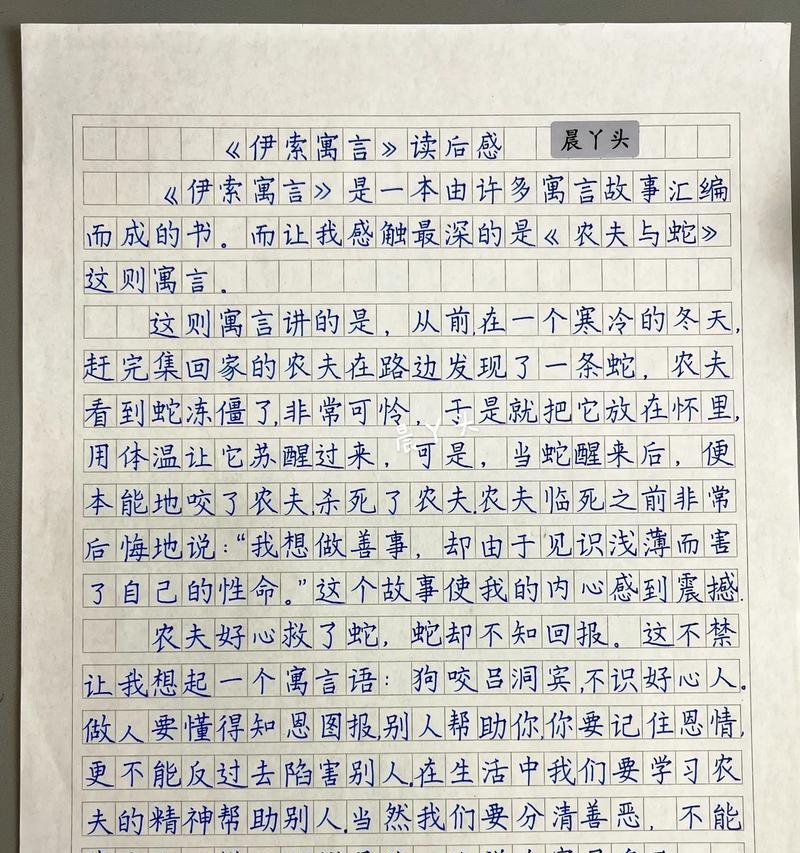 《伊索寓言》读后感 晨丫头
《伊索寓言》是一本由许多寓言故事汇编
而成的书。而让我感触最深的是《农夫与蛇》
这则寓言。
这则寓言讲的是，从前,在一个寒冷的冬天,
赶完集回家的农夫在路边发现了一条蛇，农夫
看到蛇冻僵了,非常可怜，于是就把它放在怀里,
晨丫头
用体温让它苏醒过来，可是，当蛇醒来后，便
本能地咬了农夫,杀死了农夫.农夫临死之前非常
后悔地说：“我想做善事，却由于见识浅薄而害
了自己的性命。”这个故事使我的内心感到震撼.
农夫好心救了蛇，蛇却不知回报。这不禁
让我想起一个寓言语：狗咬吕洞宾,不识好心人。
做人要懂得知恩图报,别人帮助你,你要记住恩情,
更不能反过去陷害别人.在生活中我们要学习农
夫的精神帮助别人.当然我们要分清善恶，不能